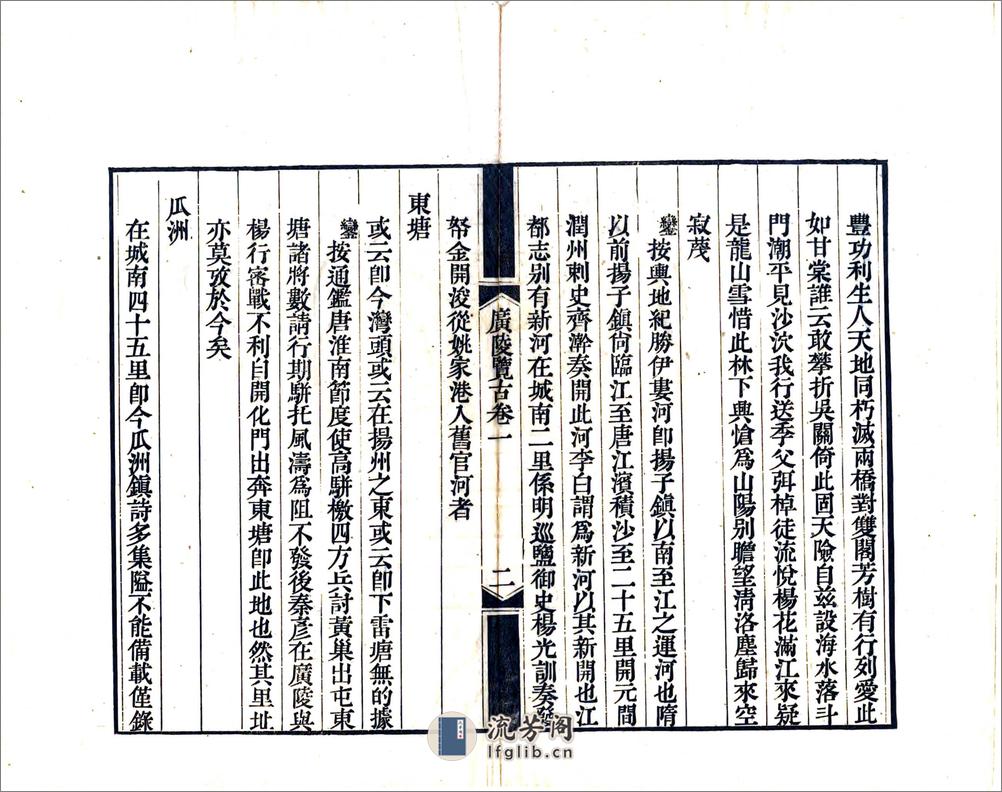 豐功利生人天地同朽滅兩橋對雙閣芳樹有行列愛此
如甘棠誰云敢攀折吳關倚此固天險自茲設海水落斗
門潮平見沙汭我行送季父弭棹徒流悅楊花滿江來疑
是龍山雪惜此林下興愴為山陽別瞻望淸洛塵歸來空
寂蔑
鑾按輿地紀勝伊婁河卽揚子鎭以南至江之運河也隋
以前揚子鎭尙臨江至唐江濱積沙至二十五里開元間
潤州刺史齊澣奏開此河李白謂為新河以其新開也江
都志別有新河在城南二里係明巡鹽御史楊光訓奏發
廣陵覽古卷一
二
帑金開浚從姚家港入舊官河者
東塘
或云卽今灣頭或云在揚州之東或云卽下雷塘無的據
鑾按通鑑唐淮南節度使高騈檄四方兵討黃巢出屯東
塘諸將數請行期騈托風濤為阻不發後秦彥在廣陵與
楊行密戰不利自開化門出奔東塘卽此地也然其里址
亦莫攷於今矣
瓜洲
在城南四十五里卽今瓜洲鎭詩多集隘不能備載僅錄
流芳阁
lfglib.cn